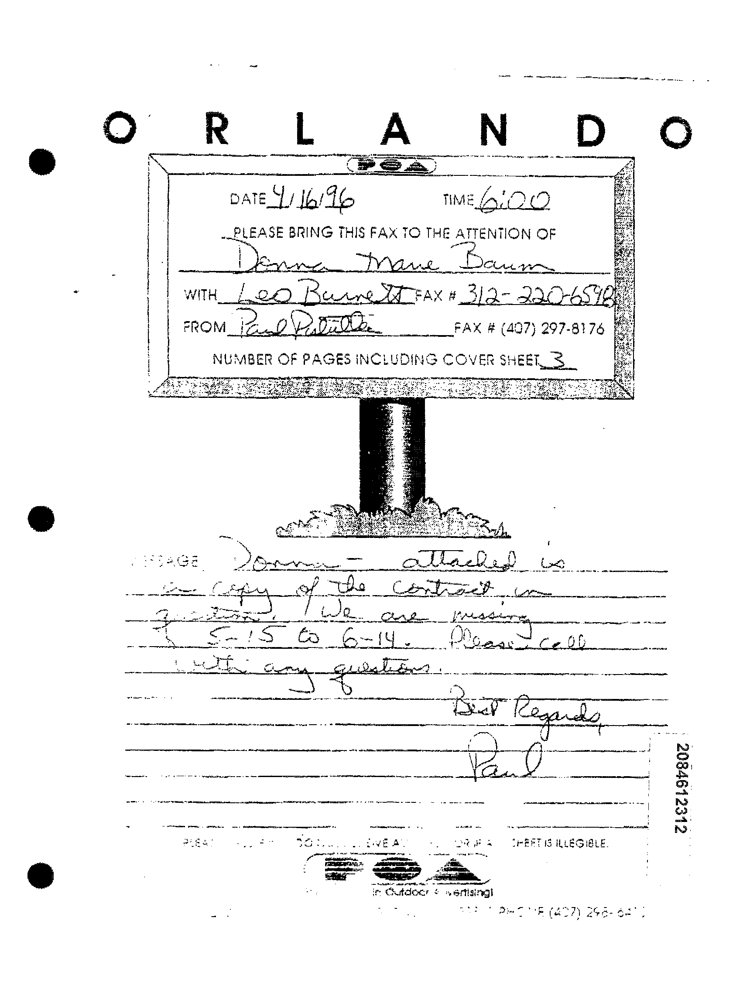 ORLANDO
POA
DATE 4/16/96 TIME 6:00
PLEASE BRING THIS FAX TO THE ATTENTION OF
Donna Marie Baum
WITH Leo Burnett FAX # 312-220-6598
FROM Paul FAX # (407) 297-8176
NUMBER OF PAGES INCLUDING COVER SHEET 3
Donna - attached is
a copy of the contract in
question. We are missing
5-15 to 6-14. Please call
with any questions.
Best Regards,
Paul
2084612312
SHEET IS ILLEGIBLE.
POA
in Outdoor Advertising!
PHONE (407) 298-